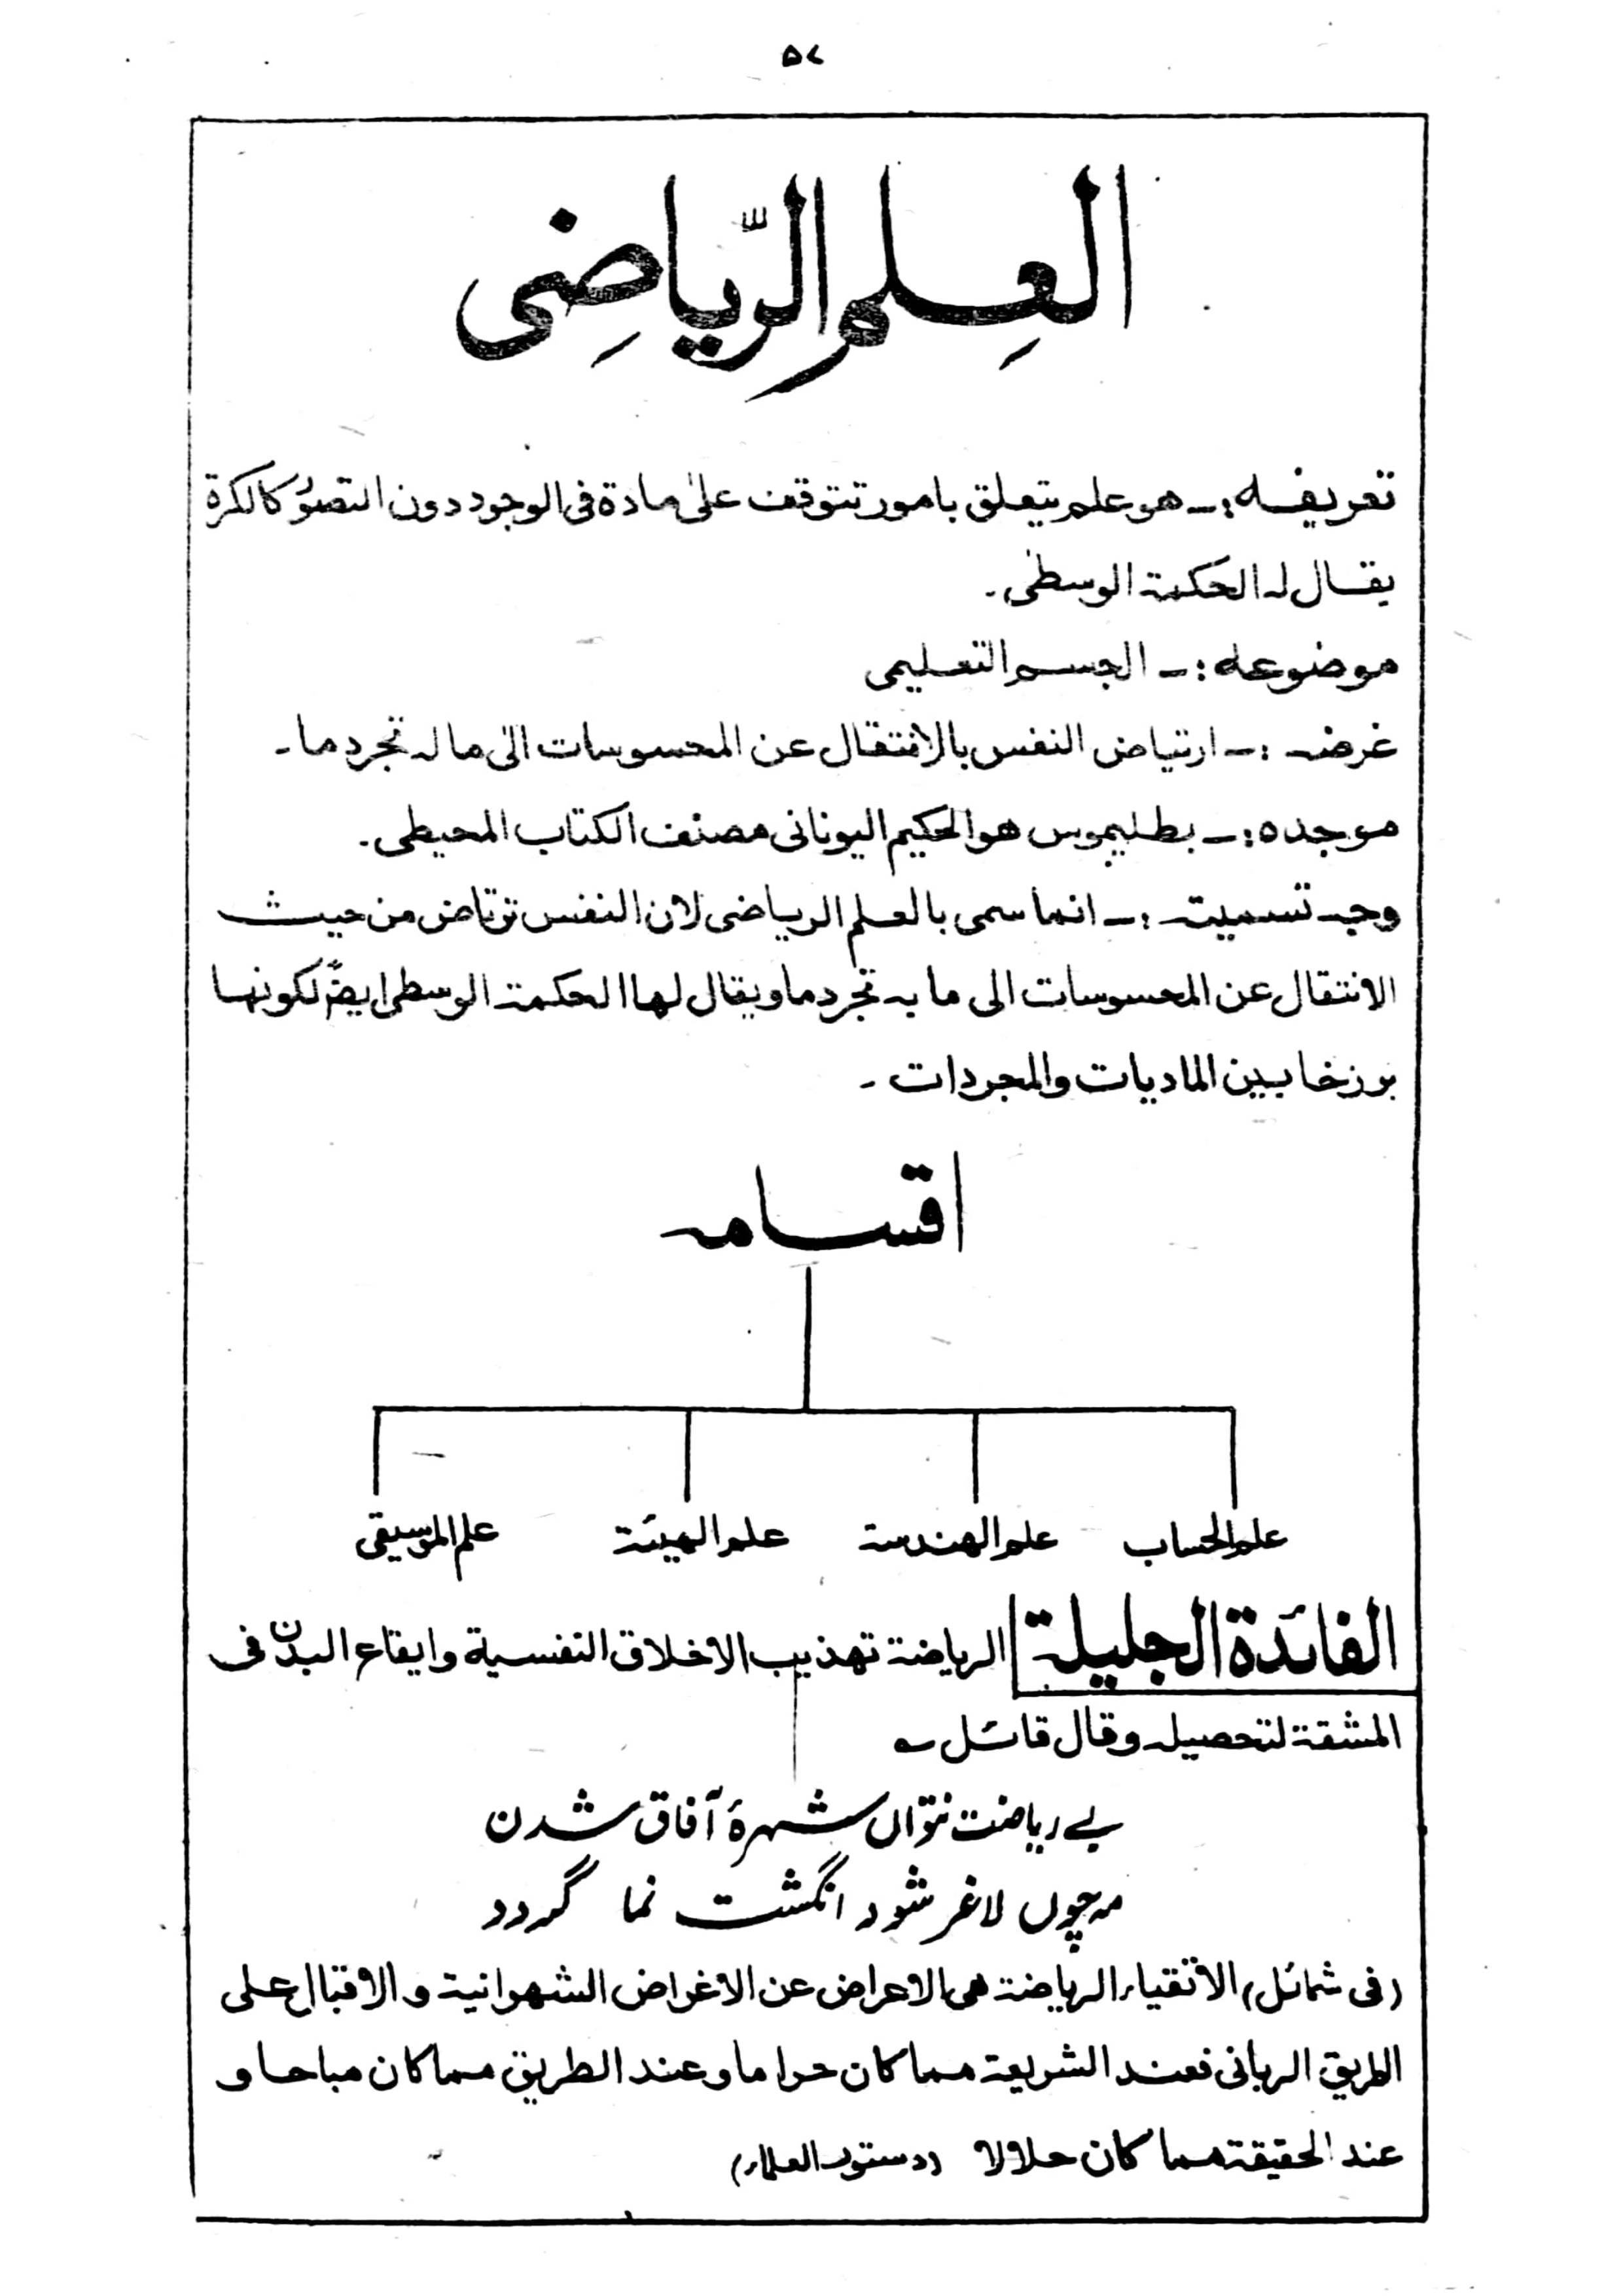 ۵۷
العِلم الرّياضِى
تعريفه :ـ هو علم يتعلق بامور تتوقف على مادة فى الوجود دون التصوُّ كالكرة
يقال له الحكمة الوسطى ـ
موضوعه :ـ الجسم التعليمى
غرضه :ـ ارتياض النفس بالانتقال عن المحسوسات الى ما له تجرد ما ـ
موجده :ـ بطليموس هو الحكيم اليونانى مصنف الكتاب المحيطى ـ
وجه تسميته :ـ انما سمى بالعلم الرياضى لان النفس ترتاض من حيث
الانتقال عن المحسوسات الى ما به تجرد ما ويقال لها الحكمة الوسطى ايضًا لكونها
برزخا بين الماديات والمجردات ـ
اقسامه
علم الحساب علم الهندسة علم الهيئة علم الموسيقى
الفائدة الجليلة الرياضة تهذيب الاخلاق النفسية وايقاع البدن فى
المشقة لتحصيله وقال قائل ؎
بے ریاضت نتواں شہرۂ آفاق شدن
مہ چوں لاغر شود انگشت نما گردد
(فى شمائل) الاتقياء الرياضة هى الاعراض عن الاغراض الشهوانية و الاقبال على
الطريق الربانى فعند الشريعة مما كان حراما وعند الطريق مما كان مباحا و
عند الحقيقة مما كان حلالا (دستور العلماء)